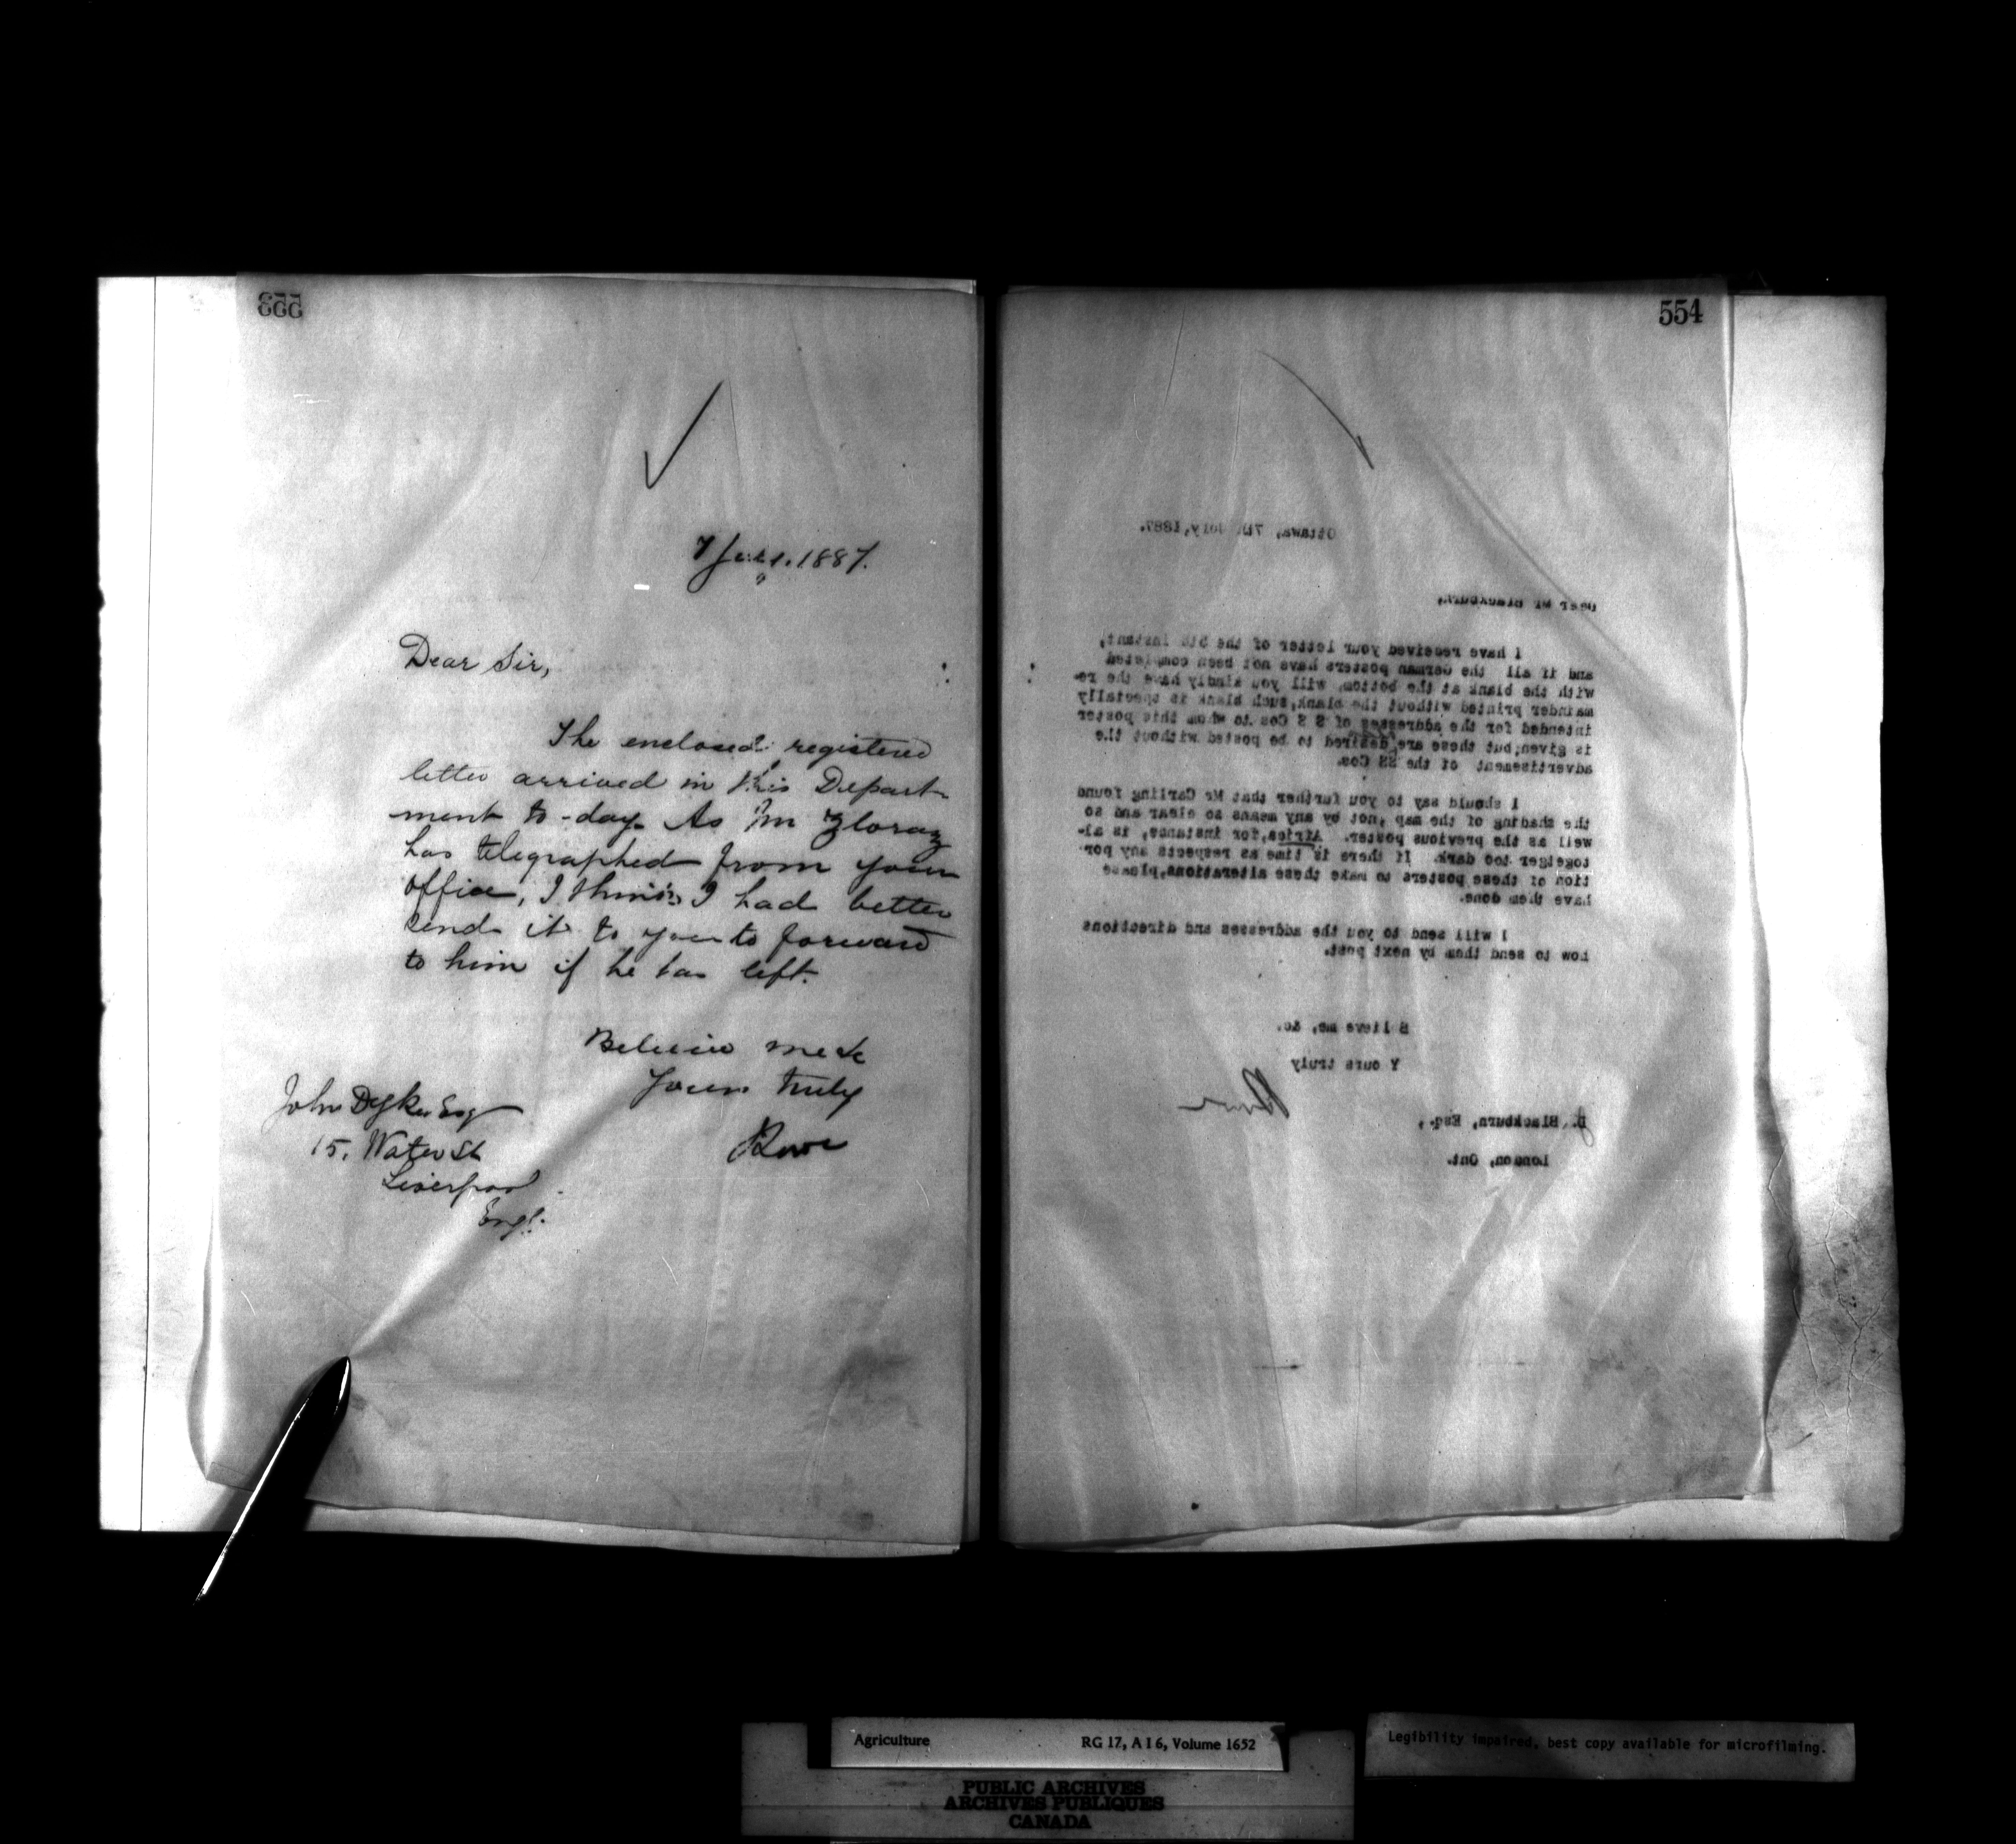 553
7 July. 1887.
Dear Sir,
The enclosed registered
letter arrived in this Depart-
ment to-day. As Mr
has telegraphed from your
office, I think I had better
send it to you to forward
to him if he has left.
Believe me &c
Yours truly
Lowe
John Dyke Esq
15, Water St
Liverpool
Engl.
554
Ottawa, 7th July, 1887.
Dear Mr Blackburn,
I have received your letter of the 5th instant,
and if all the German posters have not been completed
with the blank at the bottom, will you kindly have the re-
mainder printed without the blank, such blank is specially
intended for the addresses of S S Cos to whom this poster
is given; but these are desired to be posted without the
advertisement of the SS Cos.
I should say to you further that Mr Carling found
the shading of the map, not by any means so clear and so
well as the previous poster. Africa, for instance, is al-
togetger too dark. If there is time as respects any por-
tion of these posters to make these alterations, please
have them done.
I will send to you the addresses and directions
how to send them by next post.
B lieve me, &c.
Y ours truly
Lowe
J. Blackburn, Esq.,
London, Ont.
Agriculture RG 17, A I 6, Volume 1652
Legibility impaired, best copy available for microfilming.
PUBLIC ARCHIVES
ARCHIVES PUBLIQUES
CANADA